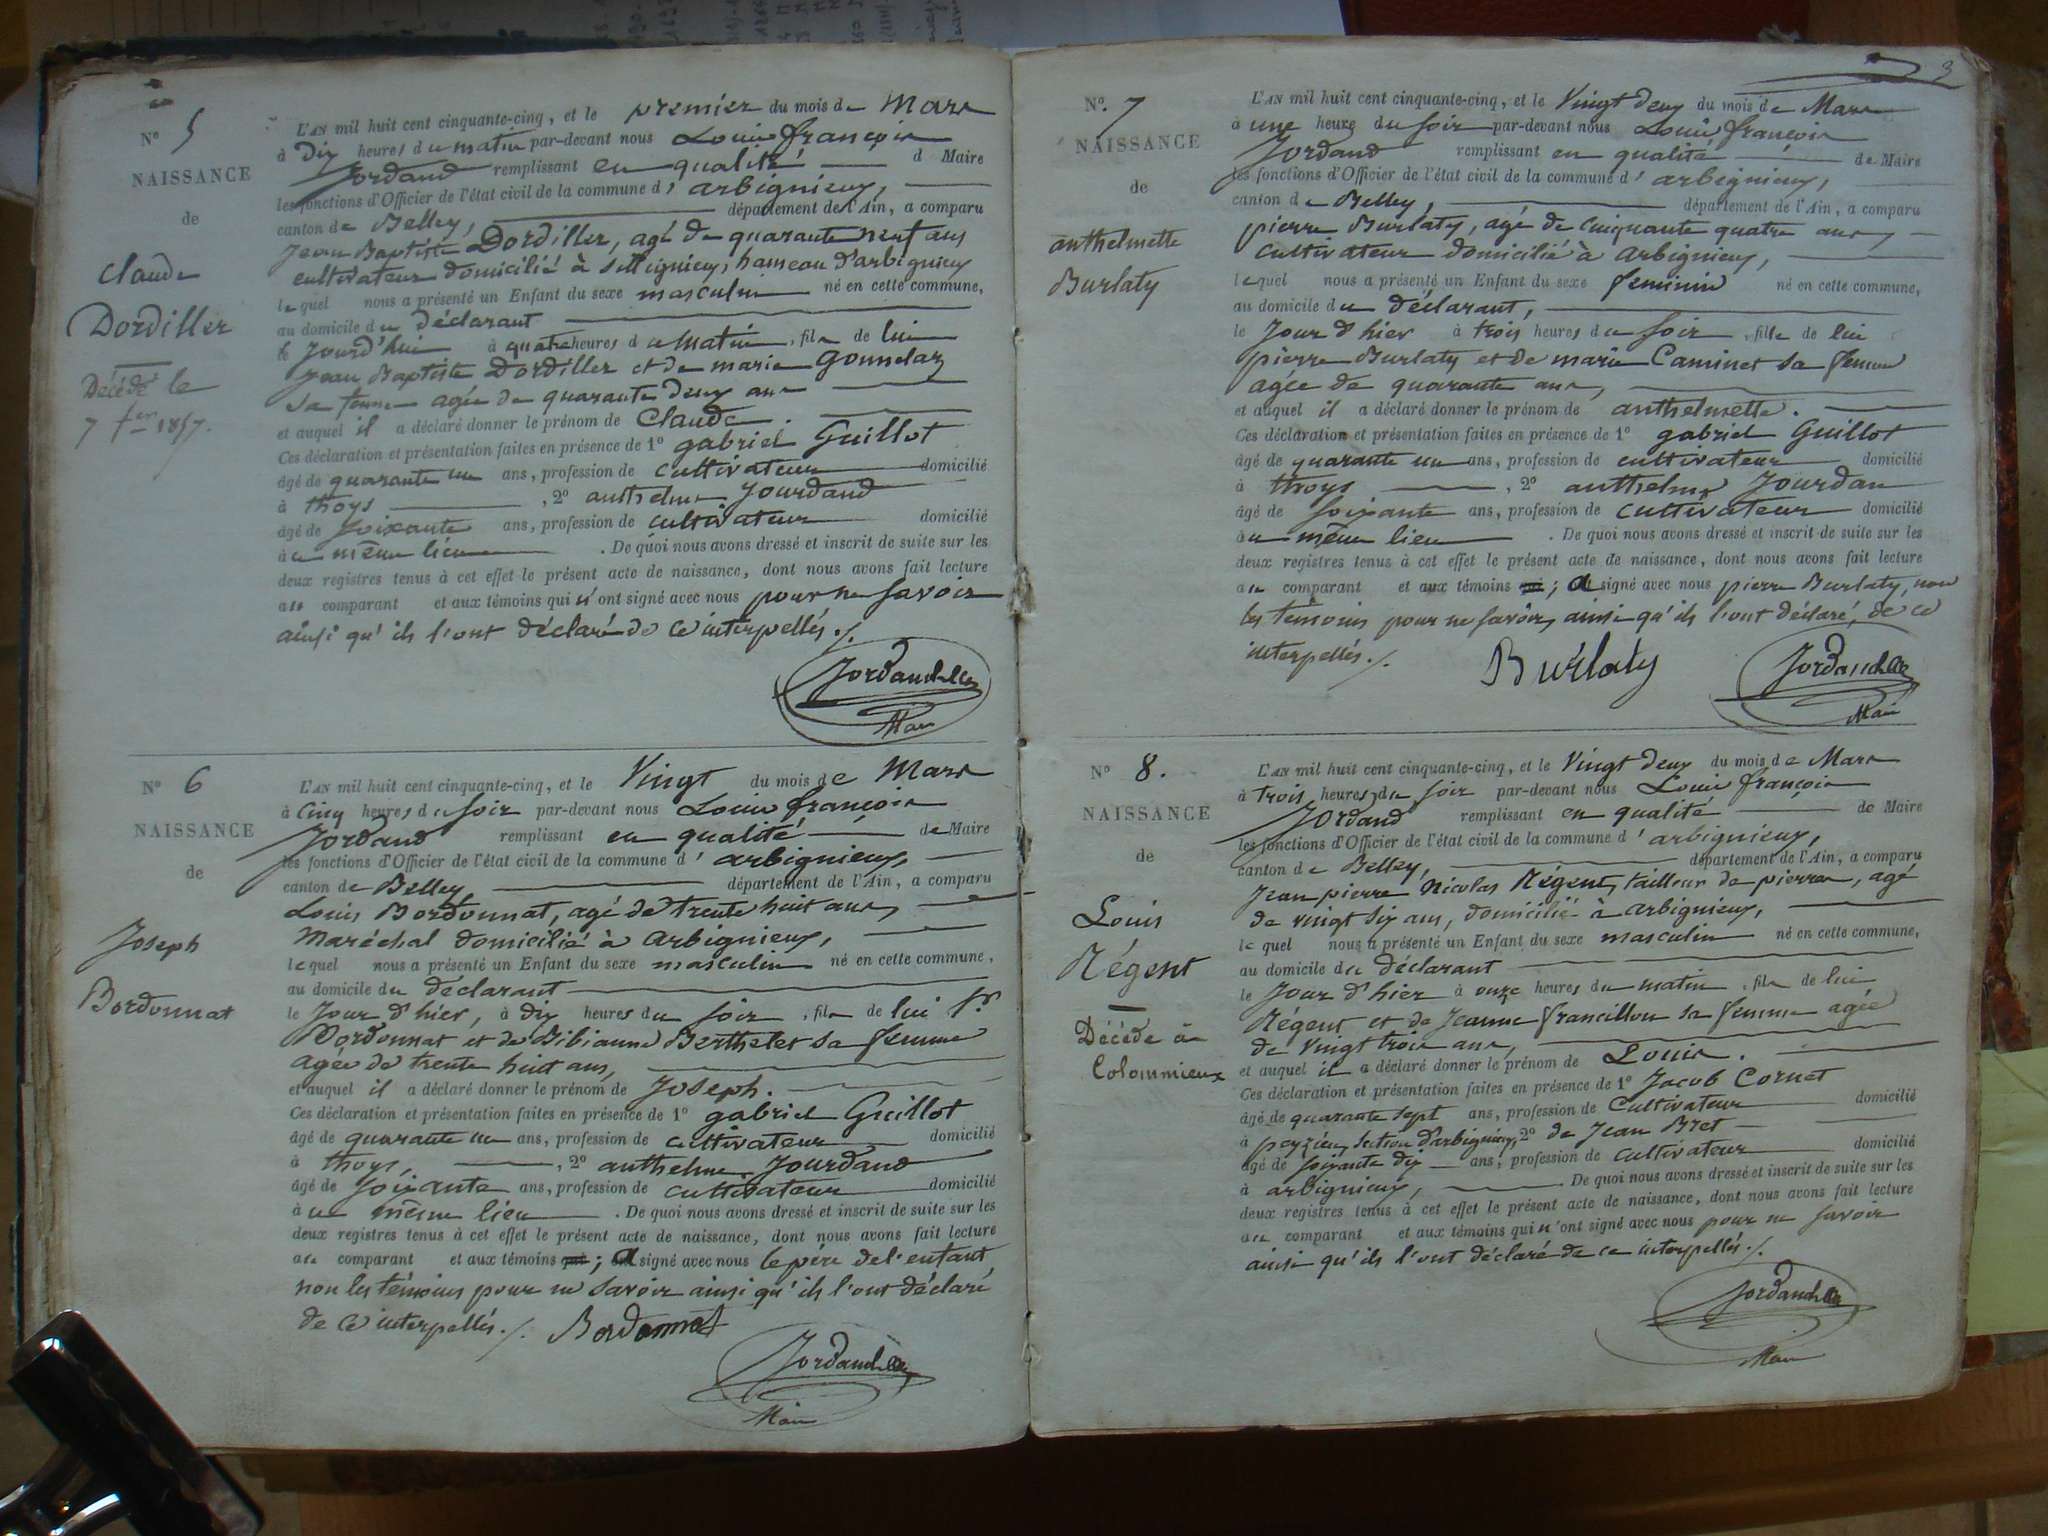 N° 5
NAISSANCE
de
Claude
Dordiller
Décédé le
7 fer 1857.
L'AN mil huit cent cinquante-cinq, et le premier du mois de Mars
à Dix heures du matin par-devant nous Louis françois
Jordand remplissant en qualité d Maire
les fonctions d'Officier de l'état civil de la commune d' arbignieux,
canton de Belley, département de l'Ain, a comparu
Jean Baptiste Dordiller, agé de quarante neuf ans
cultivateur domicilié à Sillignieux, hameau d'arbignieux
lequel nous a présenté un Enfant du sexe masculin né en cette commune,
au domicile du déclarant
le Jourd'hui à quatre heures du matin, fils de lui
Jean Baptiste Dordiller et de marie Gonnelaz
sa femme agée de quarante deux ans
et auquel il a déclaré donner le prénom de Claude.
Ces déclaration et présentation faites en présence de 1° gabriel Guillot
âgé de quarante un ans, profession de cultivateur domicilié
à thoys, 2° anthelme Jourdand
âgé de soixante ans, profession de cultivateur domicilié
à u même lieu. De quoi nous avons dressé et inscrit de suite sur les
deux registres tenus à cet effet le présent acte de naissance, dont nous avons fait lecture
au comparant et aux témoins qui n'ont signé avec nous pour ne savoir
ainsi qu'ils l'ont déclaré de ce interpellés ./.
Jordand
Maire
N° 6
NAISSANCE
de
Joseph
Bordonnat
L'AN mil huit cent cinquante-cinq, et le Vingt du mois de Mars
à Cinq heures du soir par-devant nous Louis françois
Jordand remplissant en qualité de Maire
les fonctions d'Officier de l'état civil de la commune d' arbignieux,
canton de Belley, département de l'Ain, a comparu
Louis Bordonnat, agé de trente huit ans,
Maréchal domicilié à arbignieux,
lequel nous a présenté un Enfant du sexe masculin né en cette commune,
au domicile du déclarant
le Jour d'hier, à dix heures du soir, fils de lui
Bordonnat et de Bibianne Berthelet sa femme
agée de trente huit ans,
et auquel il a déclaré donner le prénom de Joseph.
Ces déclaration et présentation faites en présence de 1° gabriel Guillot
âgé de quarante un ans, profession de cultivateur domicilié
à thoys, 2° anthelme Jourdand
âgé de soixante ans, profession de cultivateur domicilié
à u même lieu. De quoi nous avons dressé et inscrit de suite sur les
deux registres tenus à cet effet le présent acte de naissance, dont nous avons fait lecture
au comparant et aux témoins qui; a signé avec nous le père de l'enfant,
non les témoins pour ne savoir ainsi qu'ils l'ont déclaré
de ce interpellés ./. Bordonnat
Jordand
Maire
3
N°. 7
NAISSANCE
de
anthelmette
Burlaty
L'AN mil huit cent cinquante-cinq, et le Vingt deux du mois de Mars
à une heure du soir par-devant nous Louis françois
Jordand remplissant en qualité de Maire
les fonctions d'Officier de l'état civil de la commune d' arbignieux,
canton de Belley, département de l'Ain, a comparu
pierre Burlaty, agé de cinquante quatre ans,
cultivateur domicilié à arbignieux,
lequel nous a présenté un Enfant du sexe feminin né en cette commune,
au domicile du déclarant,
le Jour d'hier à trois heures du soir, fille de lui
pierre Burlaty et de marie Caminet sa femme
agée de quarante ans,
et auquel il a déclaré donner le prénom de anthelmette.
Ces déclaration et présentation faites en présence de 1° gabriel Guillot
âgé de quarante un ans, profession de cultivateur domicilié
à thoys, 2° anthelme Jourdan
âgé de soixante ans, profession de cultivateur domicilié
à u même lieu. De quoi nous avons dressé et inscrit de suite sur les
deux registres tenus à cet effet le présent acte de naissance, dont nous avons fait lecture
au comparant et aux témoins qui; a signé avec nous pierre Burlaty, non
les témoins pour ne savoir, ainsi qu'ils l'ont déclaré, de ce
interpellés ./. Burlaty
Jordand
Maire
N° 8.
NAISSANCE
de
Louis
Régent
Décédé à
Colommieux
L'AN mil huit cent cinquante-cinq, et le Vingt deux du mois de Mars
à trois heures du soir par-devant nous Louis françois
Jordand remplissant en qualité de Maire
les fonctions d'Officier de l'état civil de la commune d' arbignieux,
canton de Belley, département de l'Ain, a comparu
Jean pierre Nicolas Régent, tailleur de pierres, agé
de vingt six ans, domicilié à arbignieux,
lequel nous a présenté un Enfant du sexe masculin né en cette commune,
au domicile du déclarant
le Jour d'hier à onze heures du matin, fils de lui
Régent et de Jeanne francillon sa femme agée
de vingt trois ans,
et auquel il a déclaré donner le prénom de Louis.
Ces déclaration et présentation faites en présence de 1° Jacob Cornet
âgé de quarante sept ans, profession de Cultivateur domicilié
à peyzieu, section d'arbignieux, 2° de Jean Bret
âgé de soixante dix ans, profession de cultivateur domicilié
à arbignieux, De quoi nous avons dressé et inscrit de suite sur les
deux registres tenus à cet effet le présent acte de naissance, dont nous avons fait lecture
au comparant et aux témoins qui n'ont signé avec nous pour ne savoir
ainsi qu'ils l'ont déclaré de ce interpellés ./.
Jordand
Maire